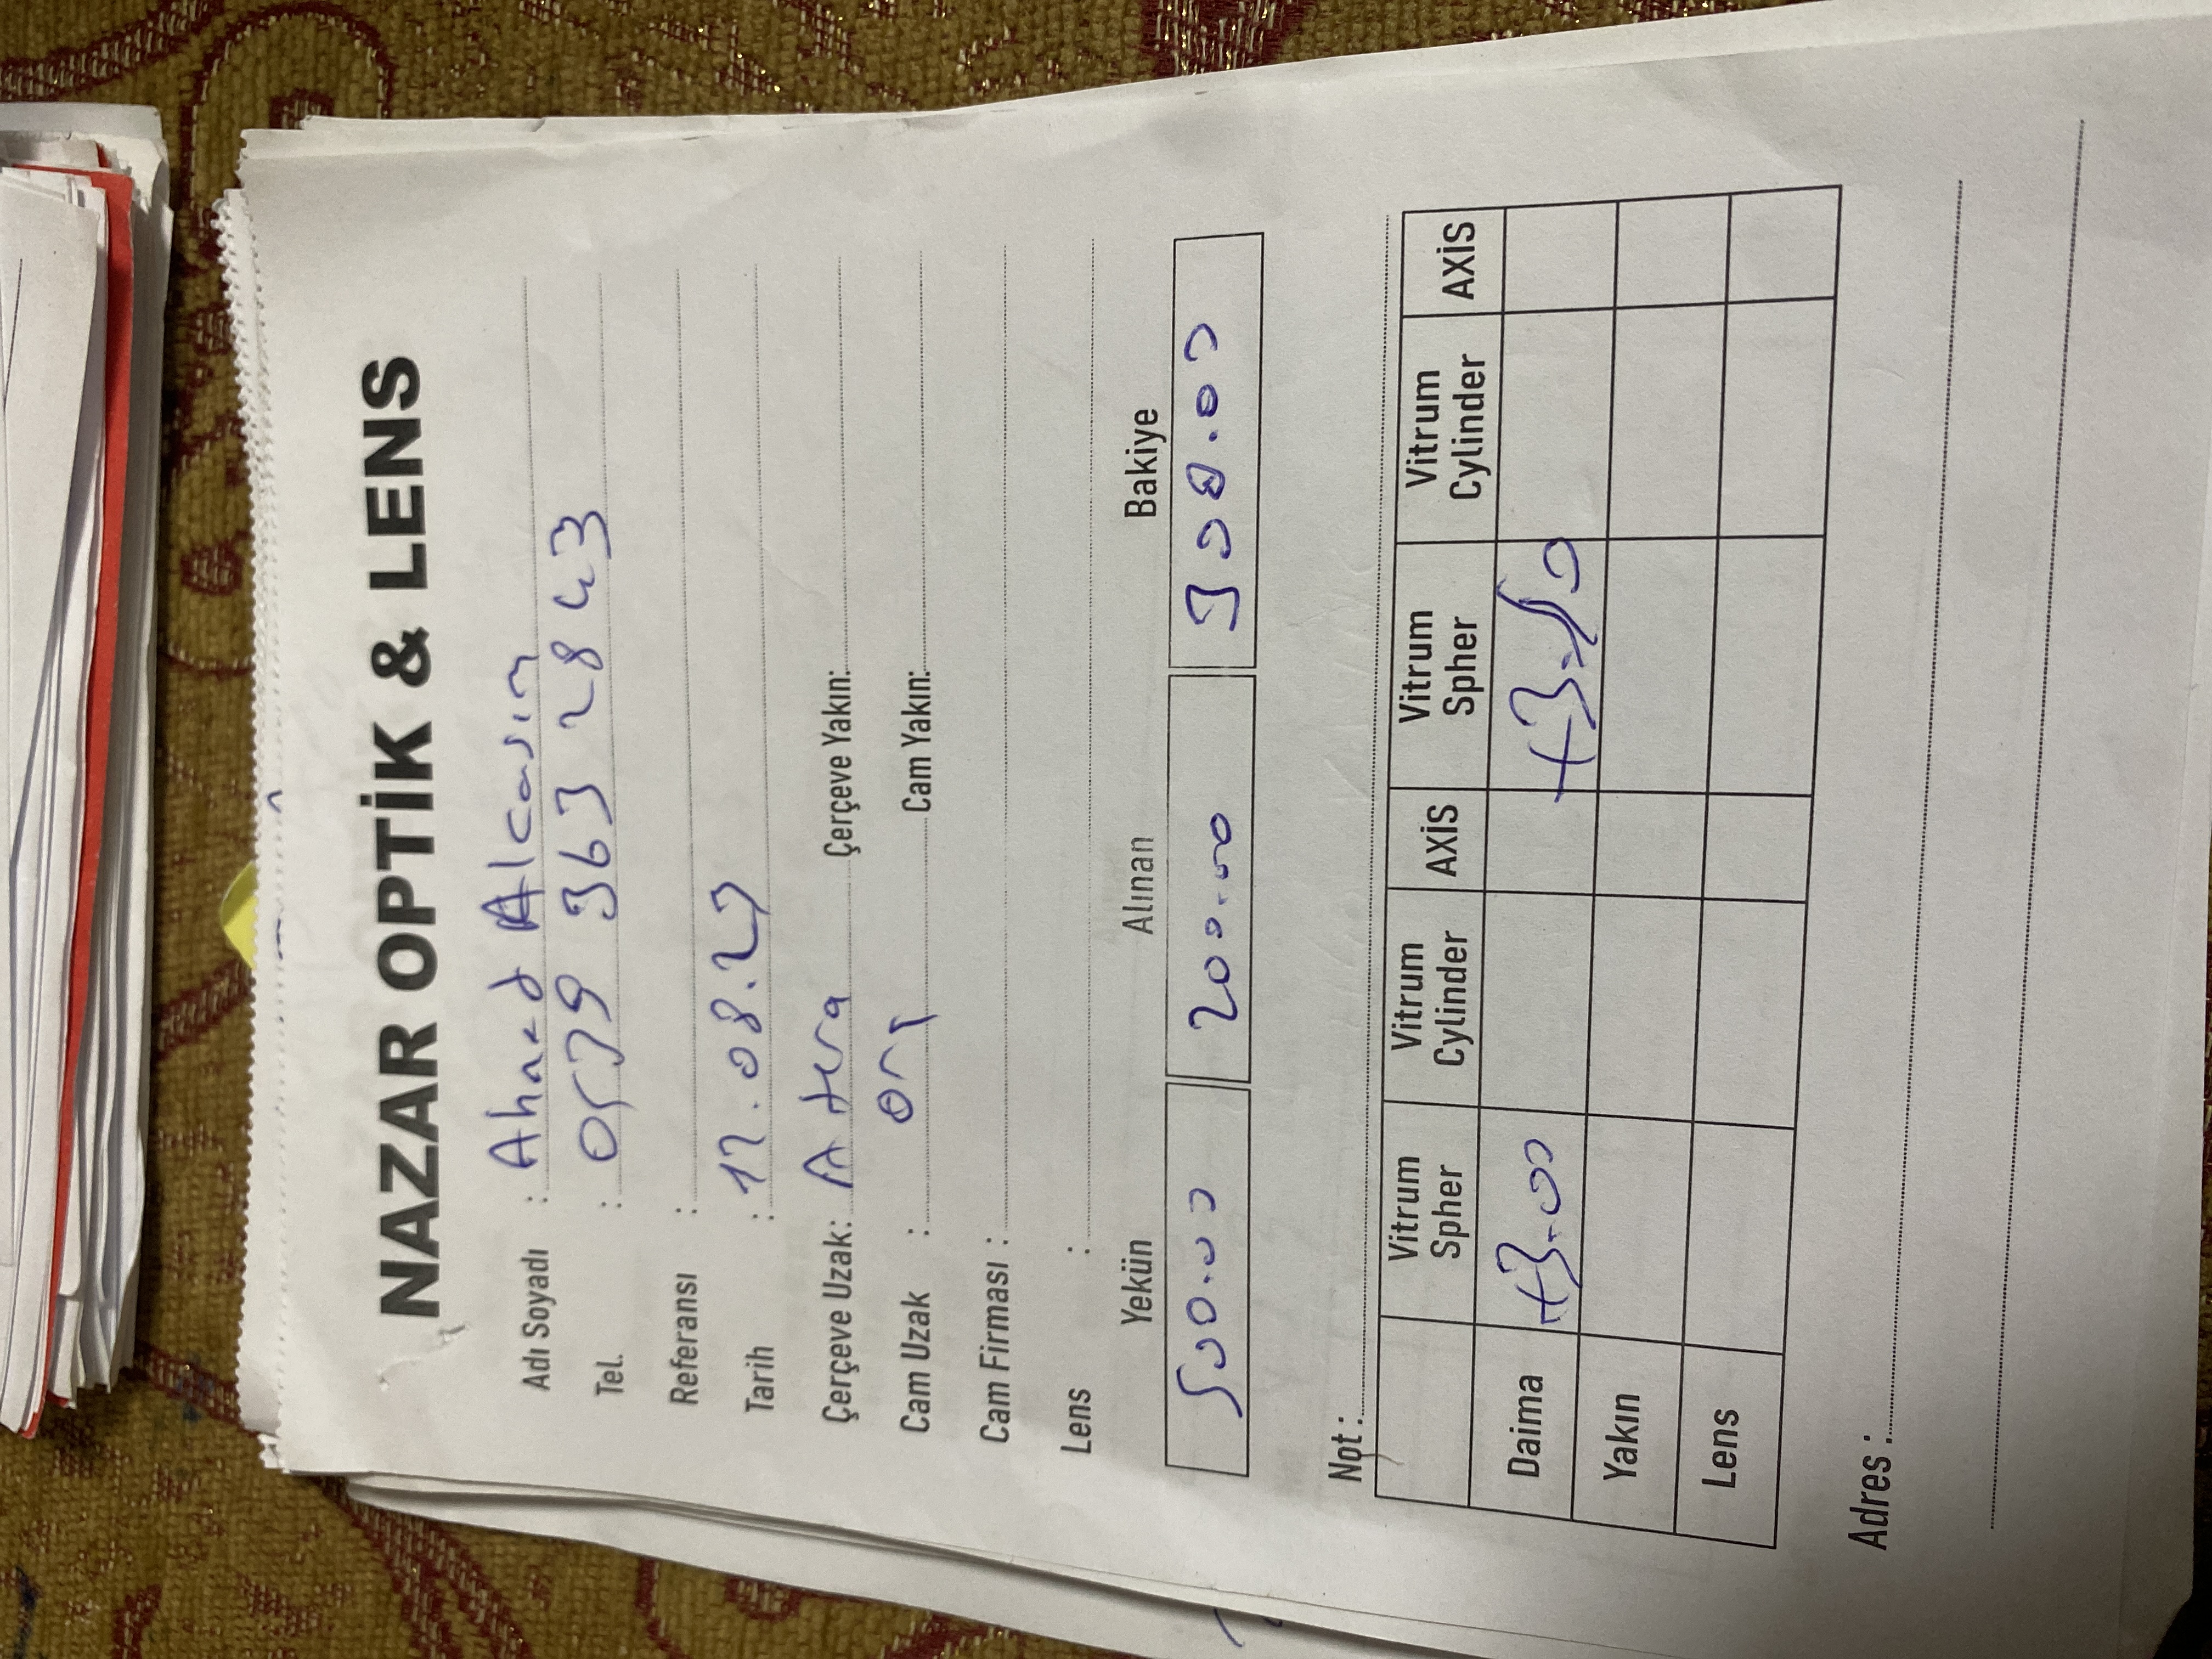 NAZAR OPTİK & LENS
Adı Soyadı : Ahmed Alcasım
Tel. : 0539 363 2843
Referansı :
Tarih : 12.08.23
Çerçeve Uzak: Çerçeve Yakın:
Cam Uzak : org Cam Yakın:
Cam Firması :
Lens :
Yekün Alınan Bakiye
500.00 200.00 300.00
Not :
Vitrum Spher Vitrum Cylinder AXİS Vitrum Spher Vitrum Cylinder AXİS
Daima +3.00 +3.50
Yakın
Lens
Adres :